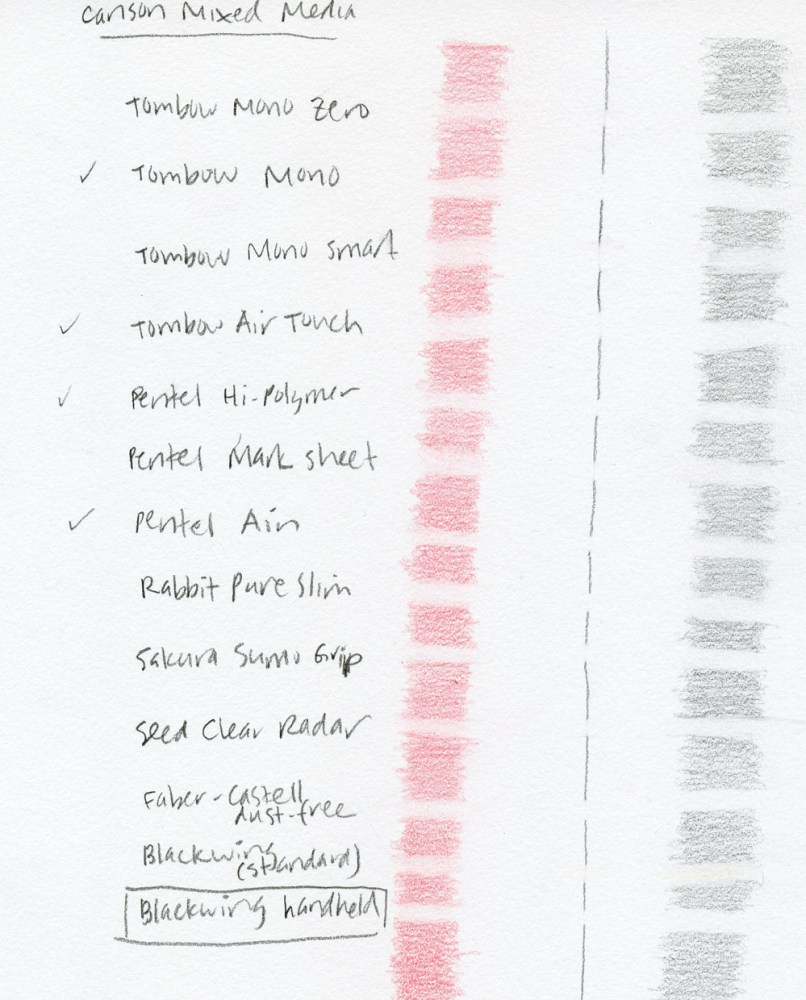 Canson Mixed Media
Tombow Mono Zero
✓ Tombow Mono
Tombow Mono smart
✓ Tombow Air Touch
✓ Pentel Hi-Polymer
Pentel Mark sheet
✓ Pentel Ain
Rabbit Pure Slim
Sakura Sumo Grip
Seed Clear Radar
Faber-Castell
dust-free
Blackwing
(standard)
Blackwing handheld